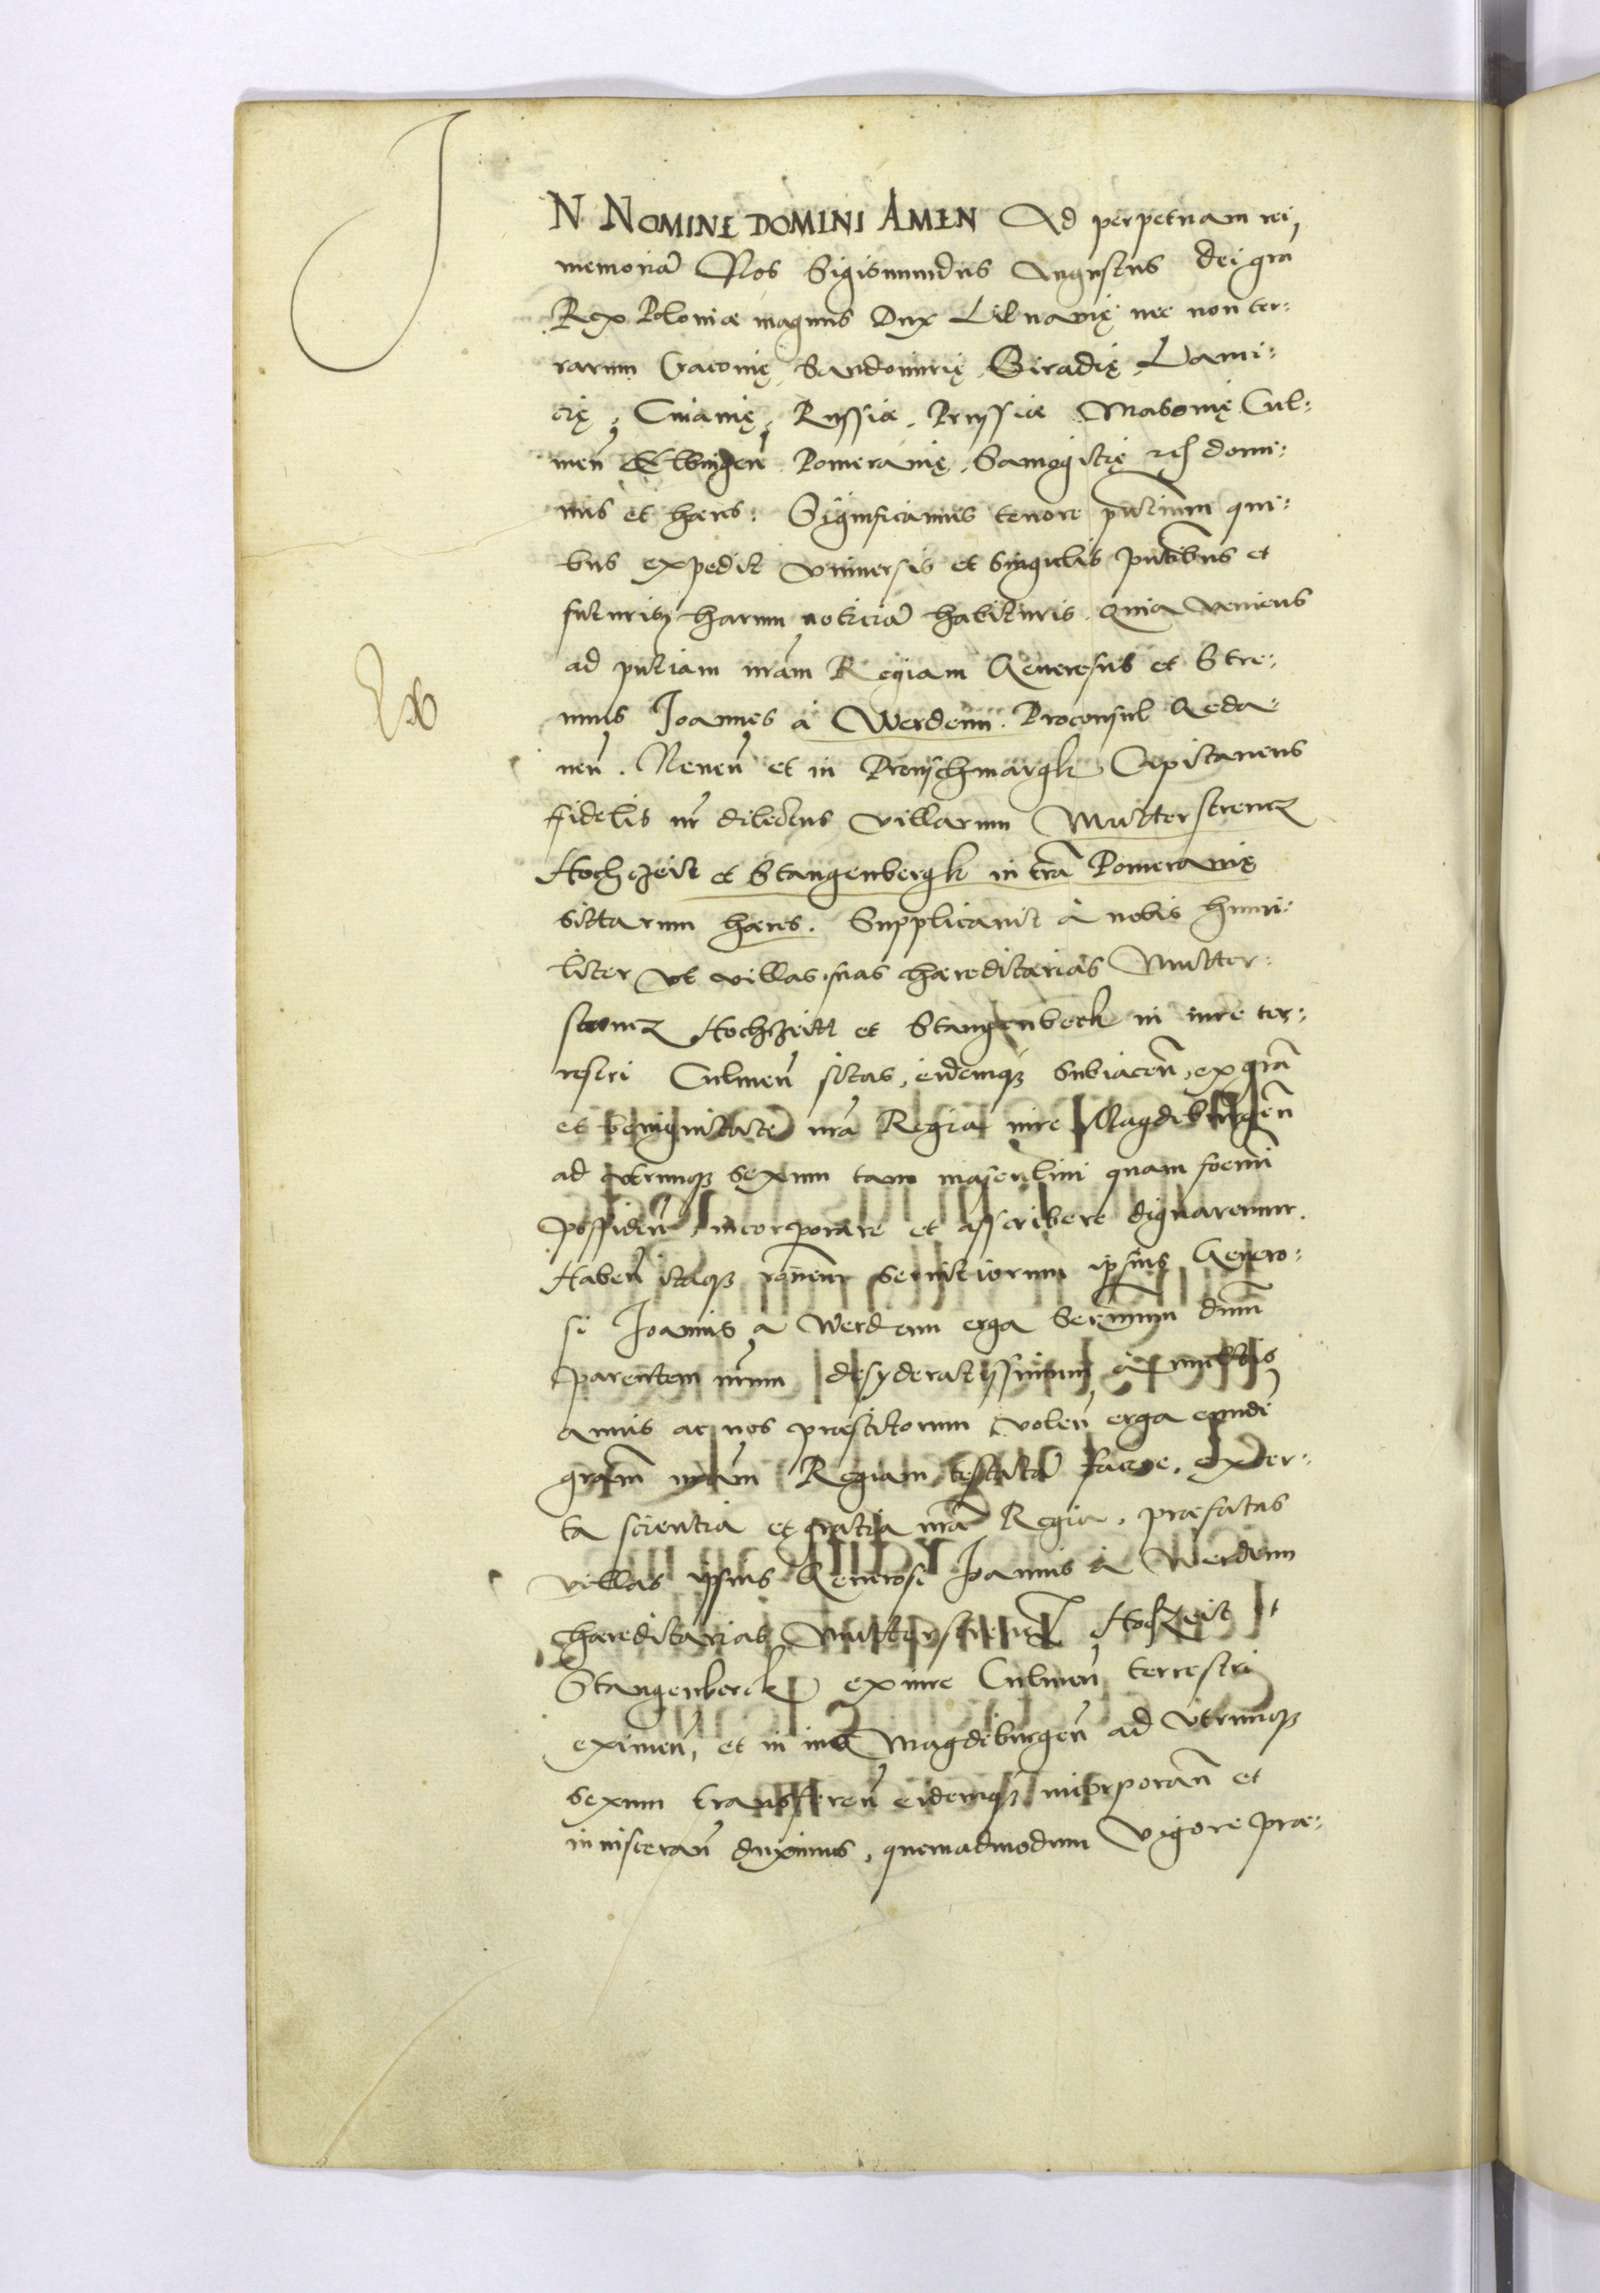 IN NOMINE DOMINI AMEN Ad perpetuam rei
memoriā Nos Sigismundus Augustus dei grā
Rex Poloniæ magnus Dux Lituanię nec non ter:
rarum Cracouię, Sandomirię, Siradię, Lanci:
cię, Cuiauię, Russiæ, Prussiæ Masouię Cul:
meñ Elbingeñ Pomeranię, Samogitię etc domi:
nus et hæres: Significamus tenore pñtium qui:
bus expedit vniuersis et singulis pñtibus et
futuris harum noticiā habituris. Quia veniens
ad pñtiam nrām Regiam Generosus et Stre:
nuus Joannes à Werdenn. Proconsul Geda:
neñ. Neueñ et in Preuschmargk Capitaneus
fidelis nr̄ dilectus villarum Mutterstrencz
Hochczeit et Stangenbergk in trā Pomeranię
sittarum hæres. Supplicauit à nobis humi:
liter vt villas suas hæreditarias Mutter:
strencz Hochzeitt et Stangenbeck in iure ter:
restri Culmeñ sitas, eidemq3 subiaceñ, ex grā
et benignitate nrā Regia iure Magdeburgeñ
ad vtrumq3 sexum tam masculini quam foemi
possideñ, incorporare et asscribere dignaremur.
Habeñ itaq3 rōnem seruitiorum ipsius Genero:
si Joannis a Werdenn erga Serm̄um dnūm
parentem nrūm desyderatissimum à multis
annis ac nos præstitorum, voleñ erga eundē
grām nrām Regiam testatā facere, ex cer:
ta scientia et gratia nrā Regia, præfatas
villas ipsius Generosi Joannis à Werdenn
hæreditarias Mutterstrencz, Hochzeit et
Stangenberck ex iure Culmeñ terrestri
eximeñ, et in ius Magdeburgeñ ad vtrumq3
sexum transfereñ eidemq3 incorporañ et
inuisceran̄ duximus, quemadmodum vigore præ: